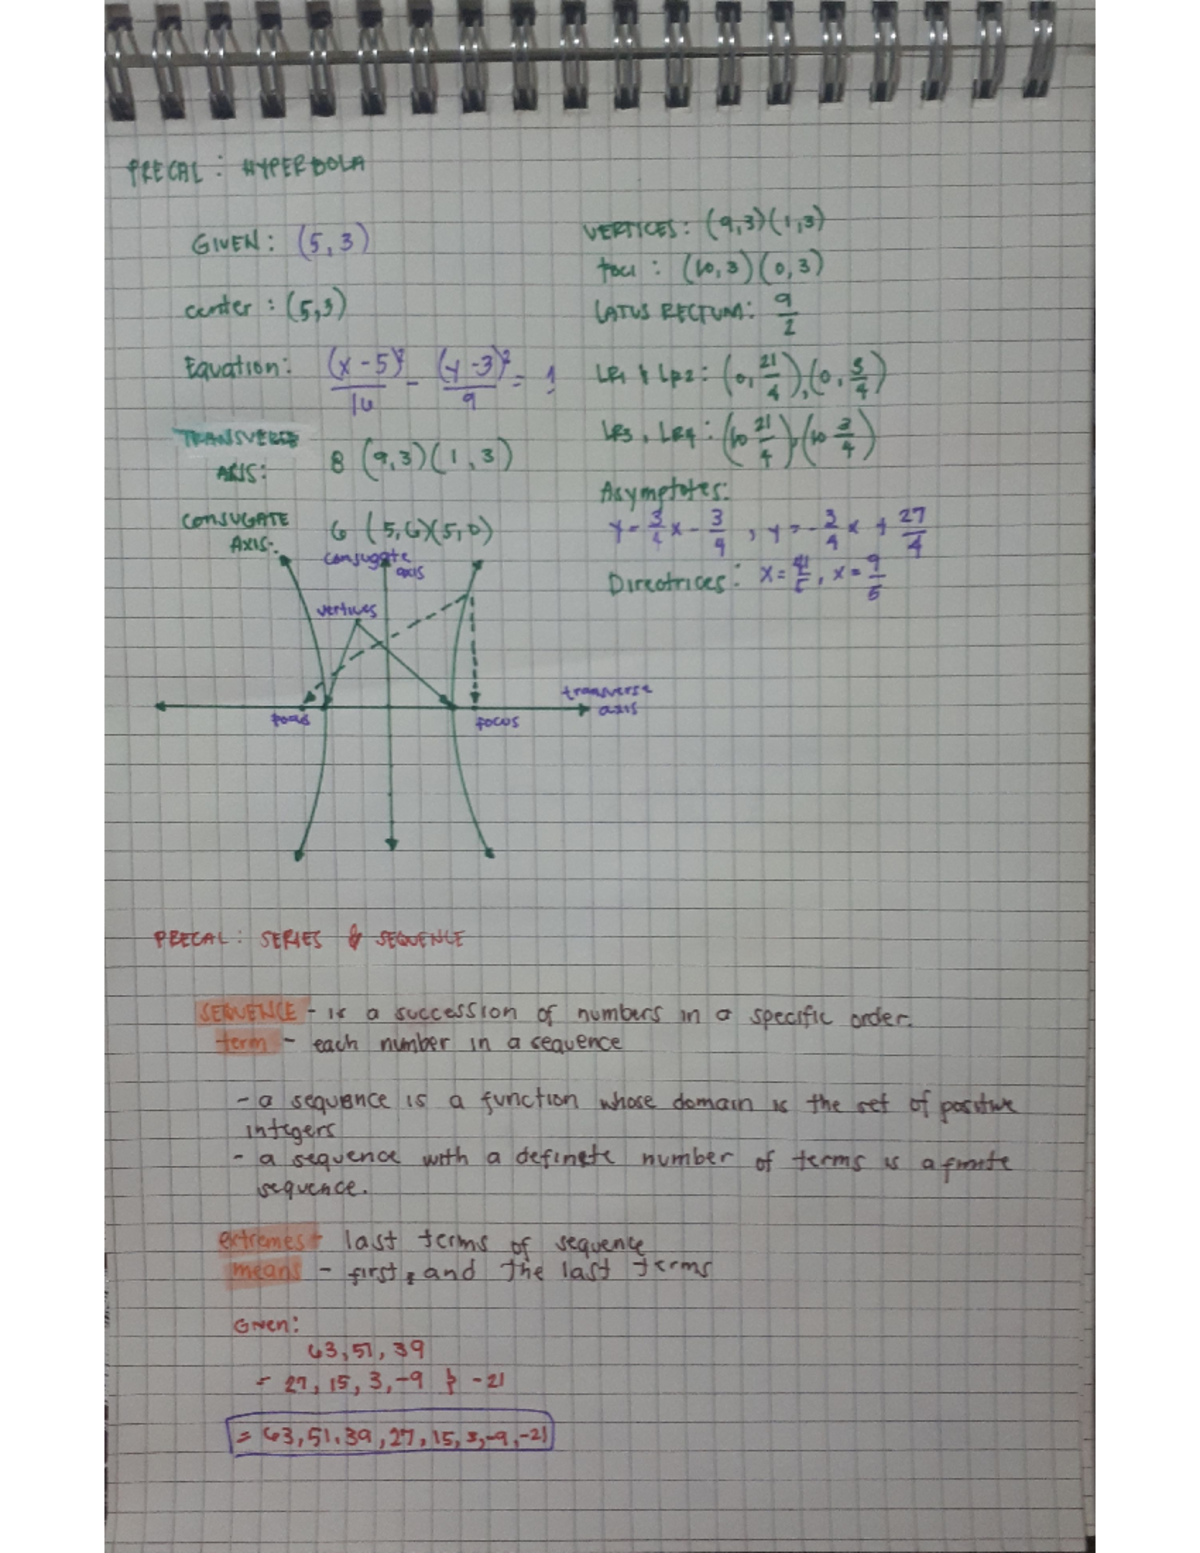 PRECAL : HYPERBOLA
GIVEN: (5, 3)
center : (5,3)
Equation: (x - 5)²/16 - (y - 3)²/9 = 1
TRANSVERSE
AXIS: 8 (9,3)(1,3)
CONJUGATE
AXIS: 6 (5,6)(5,0)
VERTICES: (9,3)(1,3)
foci : (10,3)(0,3)
LATUS RECTUM: 9/2
LR1 & LR2: (0, 21/4), (0, 3/4)
LR3, LR4: (10 21/4), (10 3/4)
Asymptotes:
y = 3/4 x - 3/4 , y = - 3/4 x + 27/4
Directrices: x = 41/5, x = 9/5
conjugate
axis
vertices
transverse
axis
focus
focus
PRECAL: SERIES & SEQUENCE
SEQUENCE - is a succession of numbers in a specific order.
term - each number in a sequence
- a sequence is a function whose domain is the set of positive
integers
- a sequence with a definete number of terms is a finite
sequence.
extremes - last terms of sequence
means - first, and the last terms
Given:
63, 51, 39
= 27, 15, 3, -9 & -21
= 63, 51, 39, 27, 15, 3, -9, -21